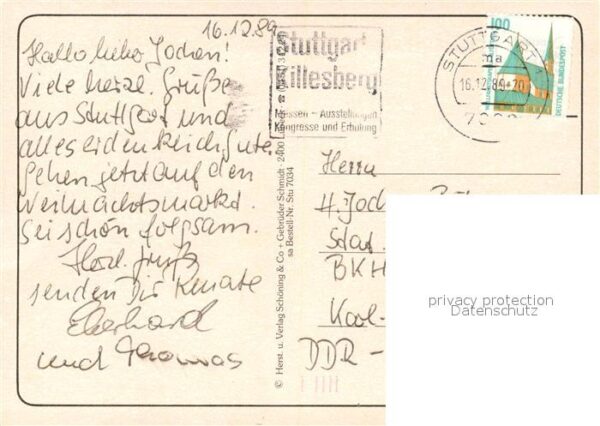 16.12.89
Hallo lieber Jochen!
Viele herzl. Grüße
aus Stuttgart und
alles
gute.
Gehen jetzt auf den
Weihnachtsmarkt.
Sei schön folgsam.
Herzl. Grüße
senden Dir Renate
Eberhard
und Thomas
Stuttgart
Killesberg
Messen - Ausstellungen
Kongresse und Erholung
STUTTGART 1
ma
16.12.89-20
7000
100
DEUTSCHE BUNDESPOST
© Herst. u. Verlag Schöning & Co + Gebrüder Schmidt · 2400
sa Bestell-Nr. Stu 7034
Herrn
H. Joch
Stat.
BKH
DDR -
privacy protection
Datenschutz